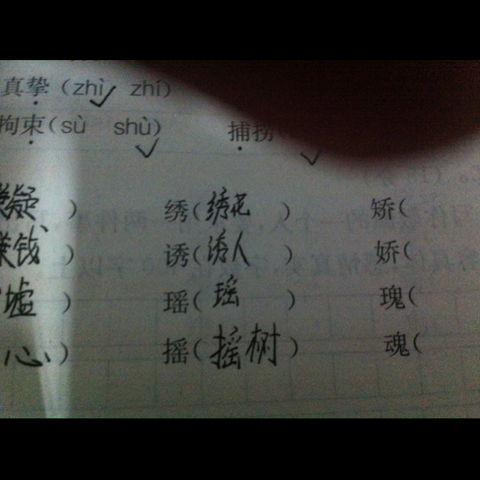 真挚（zhì zhí）
拘束（sù shù） 捕拐
嫌疑） 绣（绣花） 矫（
赚钱） 诱（诱人） 娇（
墟） 瑶（瑶） 瑰（
心） 摇（摇树） 魂（